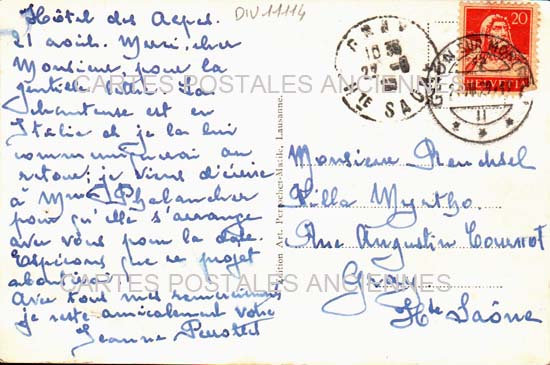 DIV.11114
Hôtel des Alpes.
21 août. Merci, cher
Monsieur, pour la
gentille lettre. La
chanteuse est en
Italie et je la lui
communiquerai au
retour; je viens d'écrire
à Mme
pour qu'elle s'arrange
avec vous pour la date.
Espérons que ce projet
aboutira!
Avec tous mes remerciements
je reste amicalement vôtre
Jeanne Perrottet
Edition Art. Perrochet-Matile, Lausanne.
GRAY
Hte SAONE
20
HELVETIA
II
Monsieur
Villa Myrtho.
Rue Augustin Cournot
Gray
Hte Saône
CARTES POSTALES ANCIENNES
CARTES POSTALES ANCIENNES